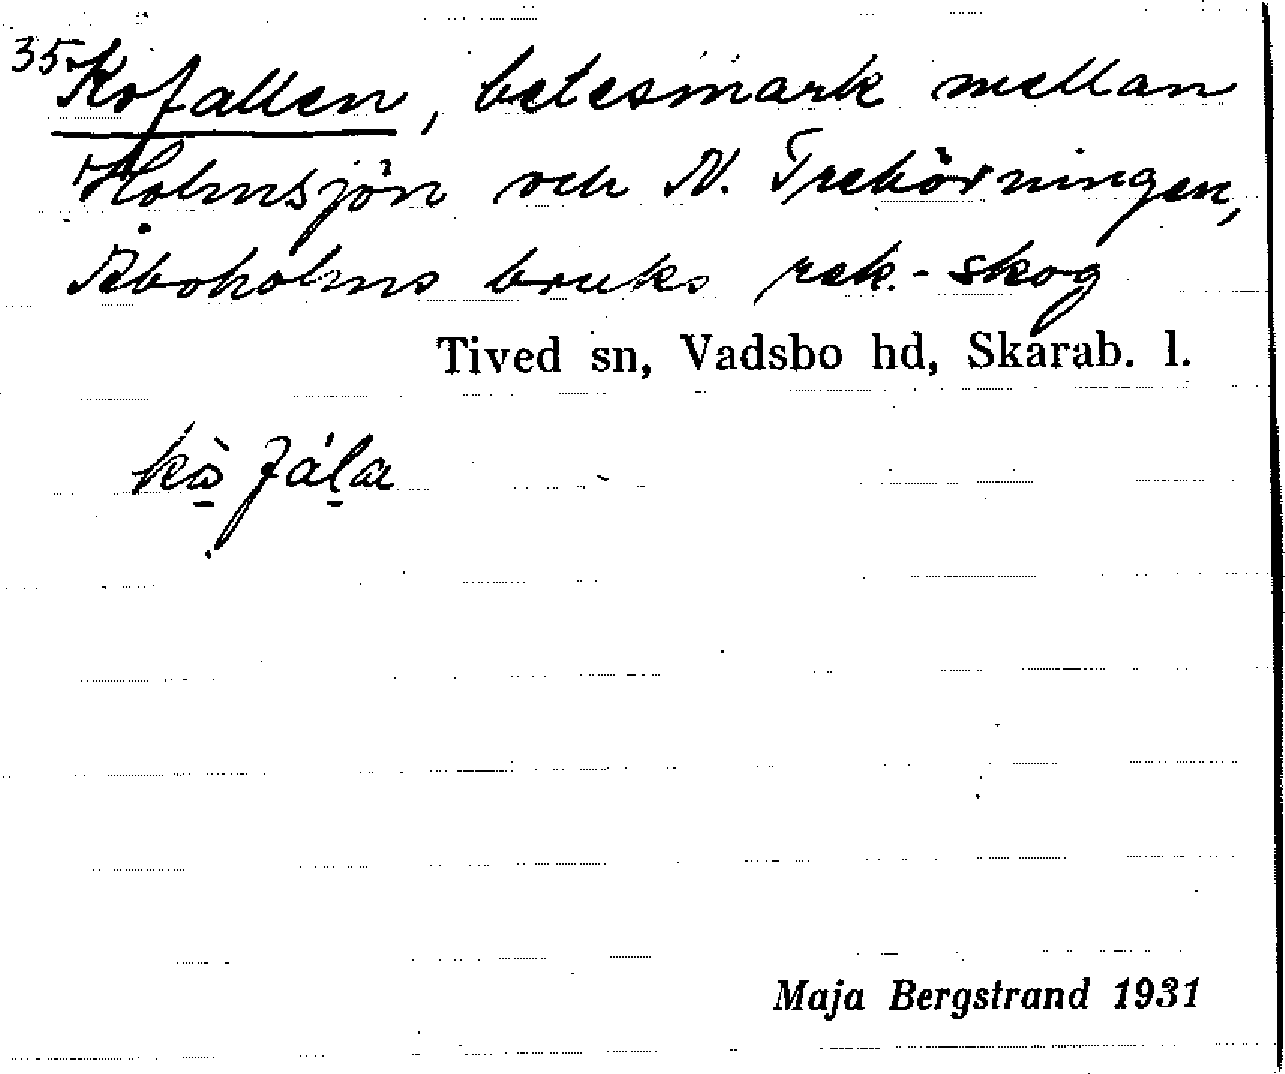 35 Kofallen, betesmark mellan
Holmsjön och N. Trehörningen,
Åboholms bruks rek.-skog
Tived sn, Vadsbo hd, Skarab. l.
kò fála
Maja Bergstrand 1931